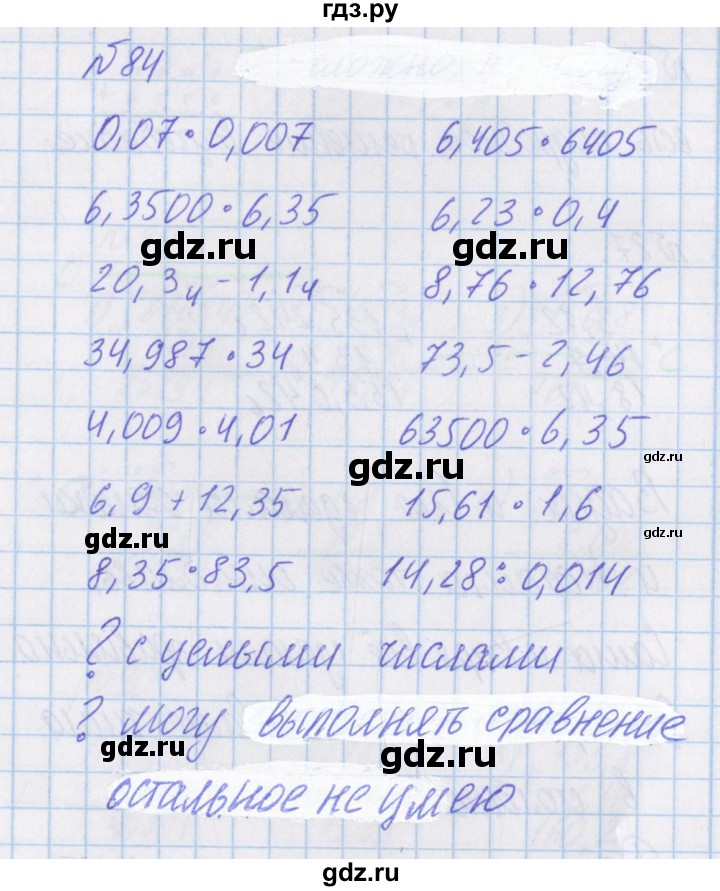 гдз.ру
№84
0,07 • 0,007 6,405 • 6405
6,3500 • 6,35 6,23 • 0,4
gdz.ru gdz.ru
20,34 - 1,14 8,76 • 12,76
34,987 • 34 73,5 - 2,46
4,009 • 4,01 63500 • 6,35
gdz.ru gdz.ru
6,9 + 12,35 15,61 • 1,6
gdz.ru gdz.ru
8,35 • 83,5 14,28 : 0,014
? с целыми числами
? могу выполнять сравнение
gdz.ru gdz.ru
остальное не умею
gdz.ru